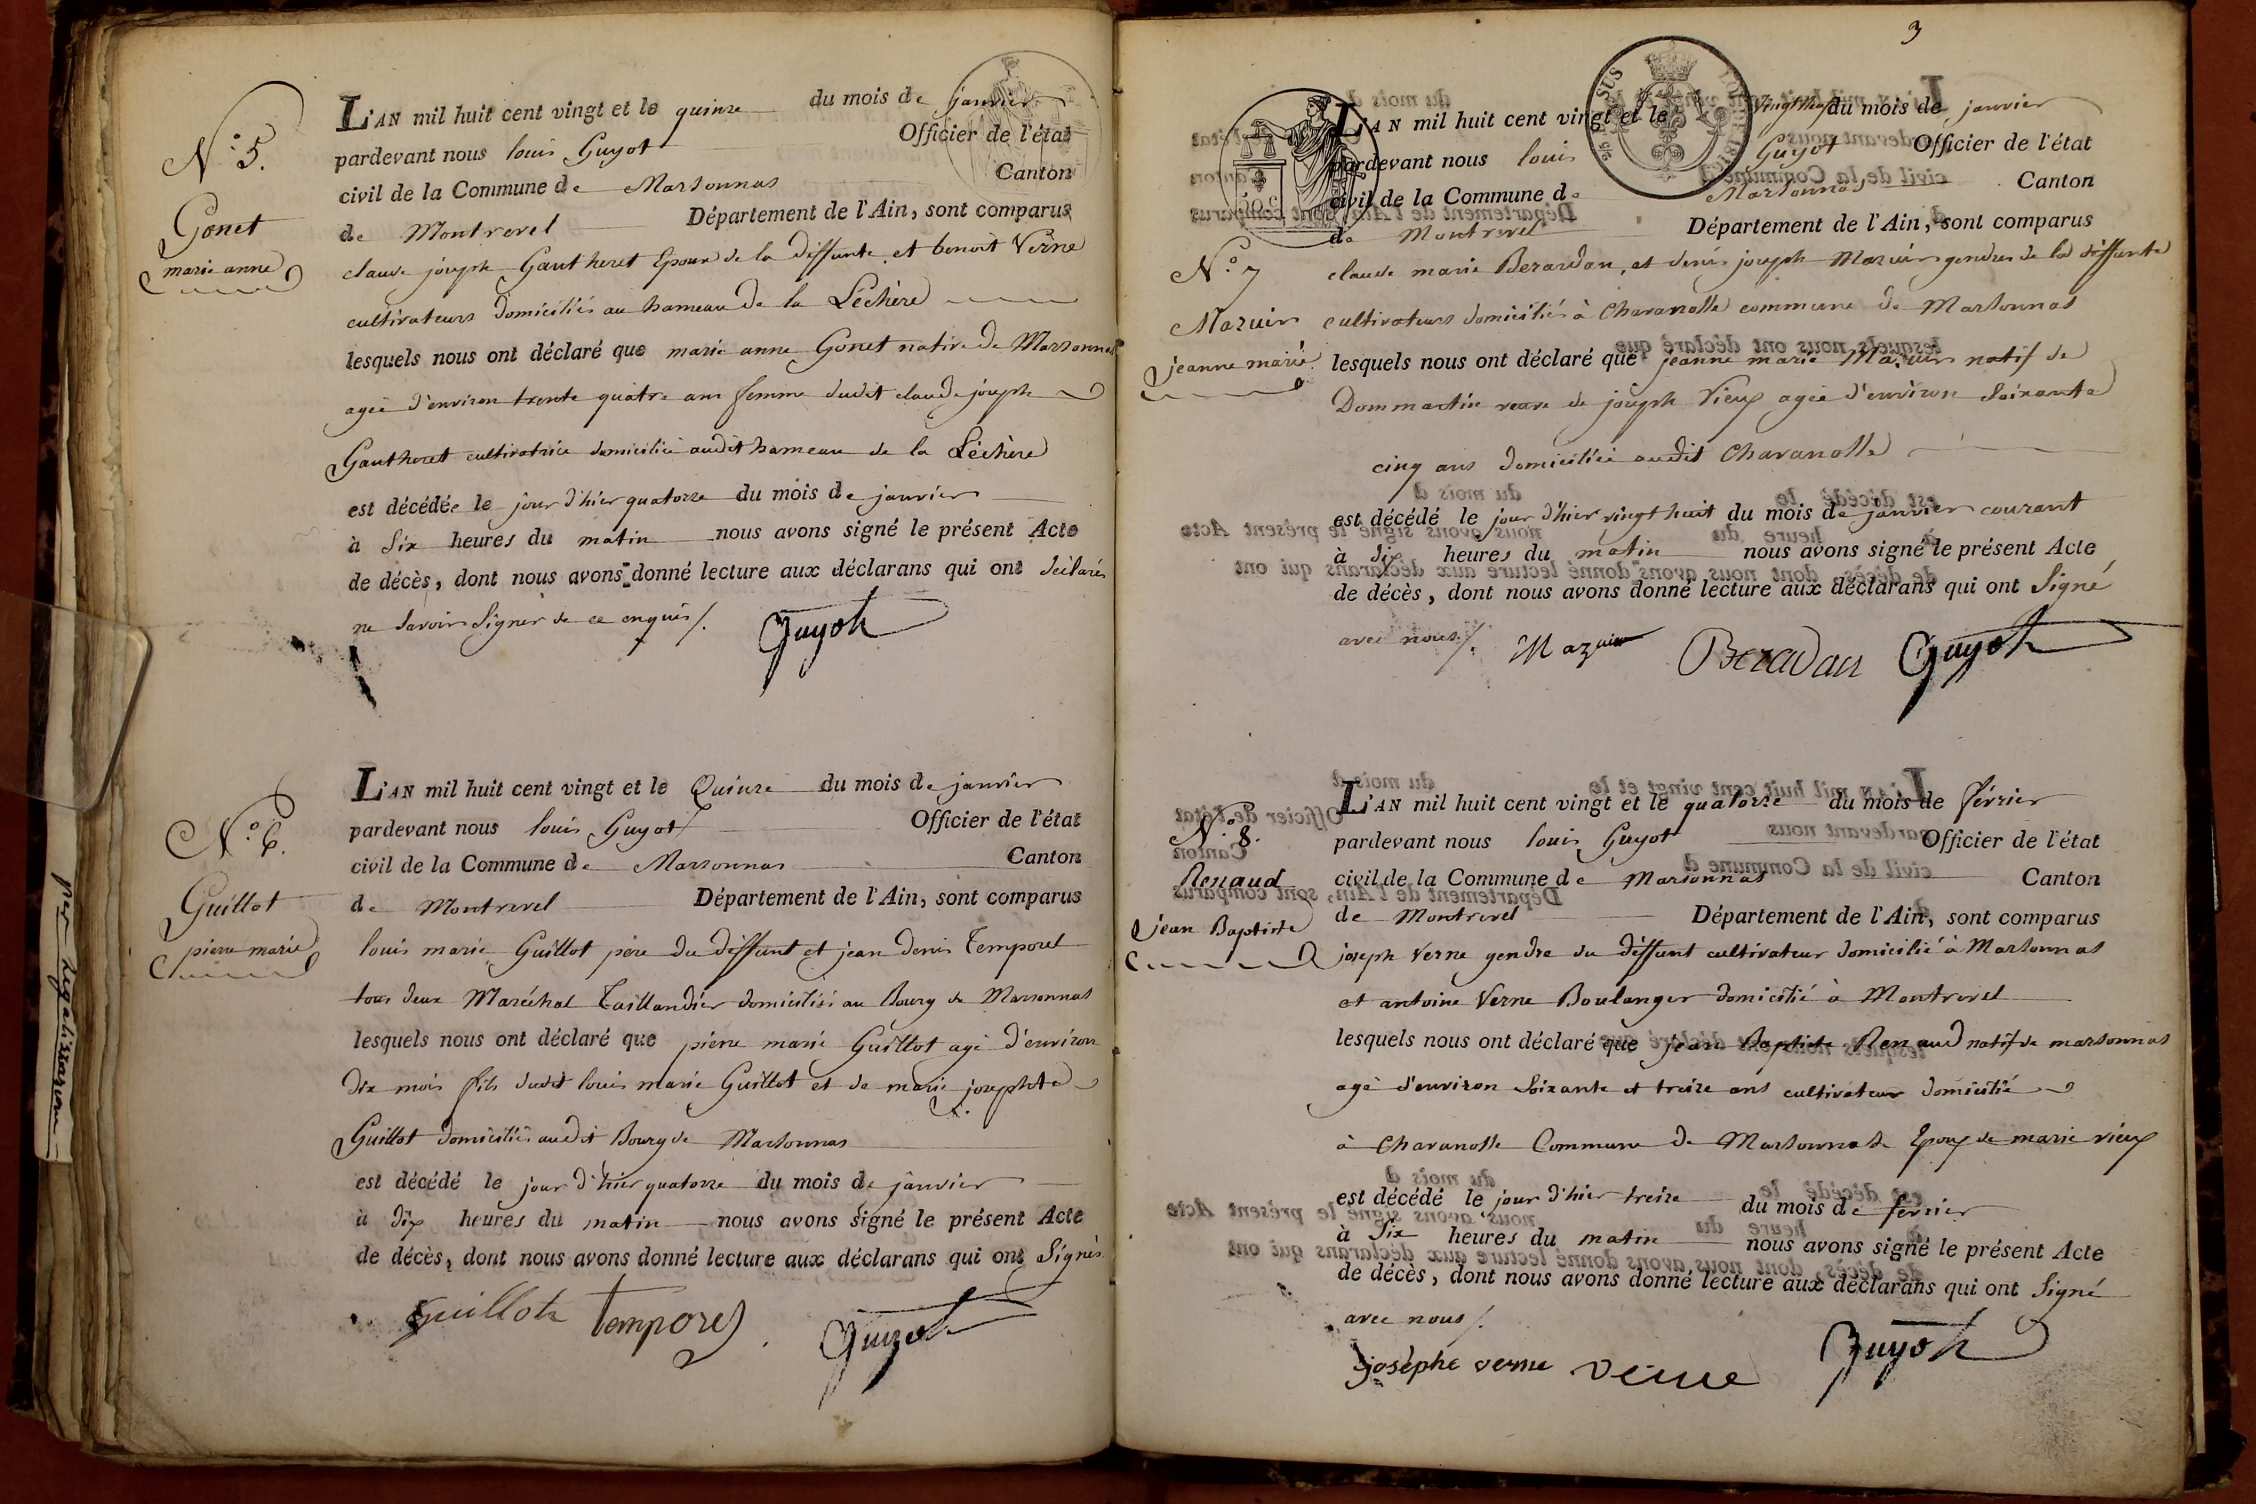 N.° 5.
Gonet
marie anne
L'AN mil huit cent vingt et le quinze du mois de janvier
pardevant nous louis Guyot Officier de l'état
civil de la Commune de Marsonnas Canton
de Montrevel Département de l'Ain, sont comparus
claude joseph Gautheret Epoux de la diffunte et benoit Verne
cultivateurs domiciliés au hameau de la Léchère
lesquels nous ont déclaré que marie anne Gonet native de Marsonnas
agée d'environ trente quatre ans femme dudit claude joseph
Gautheret cultivatrice domiciliée audit hameau de la Léchère
est décédée le jour d'hier quatorze du mois de janvier
à Six heures du matin nous avons signé le présent Acte
de décès, dont nous avons donné lecture aux déclarans qui ont déclarés
ne Savoir Signer de ce enquis /.
Guyot
N.° 6.
Guillot
pierre marie
L'AN mil huit cent vingt et le Quinze du mois de janvier
pardevant nous louis Guyot Officier de l'état
civil de la Commune de Marsonnas Canton
de Montrevel Département de l'Ain, sont comparus
louis marie Guillot père du diffunt et jean denis Temporel
tous deux Maréchal Taillandier domiciliés au Bourg de Marsonnas
lesquels nous ont déclaré que pierre marie Guillot agé d'environ
dix mois fils dudit louis marie Guillot et de marie josephte
Guillot domiciliés audit Bourg de Marsonnas
est décédé le jour d'hier quatorze du mois de janvier
à dix heures du matin nous avons signé le présent Acte
de décès, dont nous avons donné lecture aux déclarans qui ont Signés
Guillot Temporel Guyot
3
N.° 7
Mazuir
jeanne marie
L'AN mil huit cent vingt et le du mois de janvier
pardevant nous louis Guyot Officier de l'état
civil de la Commune de Marsonnas Canton
de Montrevel Département de l'Ain, sont comparus
claude marie Berardan, et denis joseph Mazuir gendres de la diffunte
cultivateurs domiciliés à Charanolle commune de Marsonnas
lesquels nous ont déclaré que jeanne marie Mazuir natif de
Dommartin veuve de joseph Vieux agée d'environ Soixante
cinq ans domiciliée audit Charanolle
est décédé le jour d'hier vingt huit du mois de janvier courant
à dix heures du matin nous avons signé le présent Acte
de décès, dont nous avons donné lecture aux déclarans qui ont Signé
avec nous /. Mazuir Beradan Guyot
N.° 8.
Renaud
jean Baptiste
L'AN mil huit cent vingt et le quatorze du mois de février
pardevant nous louis Guyot Officier de l'état
civil de la Commune de Marsonnas Canton
de Montrevel Département de l'Ain, sont comparus
joseph Verne gendre du diffunt cultivateur domicilié à Marsonnas
et antoine Verne Boulanger domicilié à Montrevel
lesquels nous ont déclaré que jean Baptiste Renaud natif de marsonnas
agé d'environ Soixante et treize ans cultivateur domicilié
à Charanolle Commune de Marsonnas Epoux de marie vieux
est décédé le jour d'hier treize du mois de fevrier
à Six heures du matin nous avons signé le présent Acte
de décès, dont nous avons donné lecture aux déclarans qui ont Signé
avec nous /.
josèphe verne verne Guyot